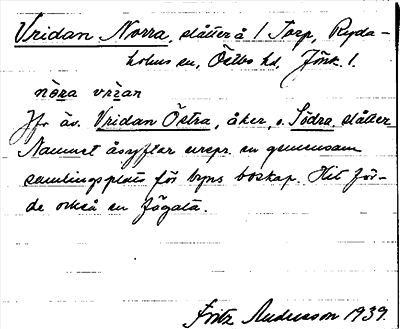 Vridan Norra, slåtter å 1 Torp, Ryda-
holms sn, Östbo hd, Jönk. l.
nö̱ra vri̱an
Jfr äv. Vridan Östra, åker, o. Södra, slåtter
Namnet åsyftar urspr. en gemensam
samlingsplats för byns boskap. Hit för-
de också en fägata.
Fritz Andersson 1939.